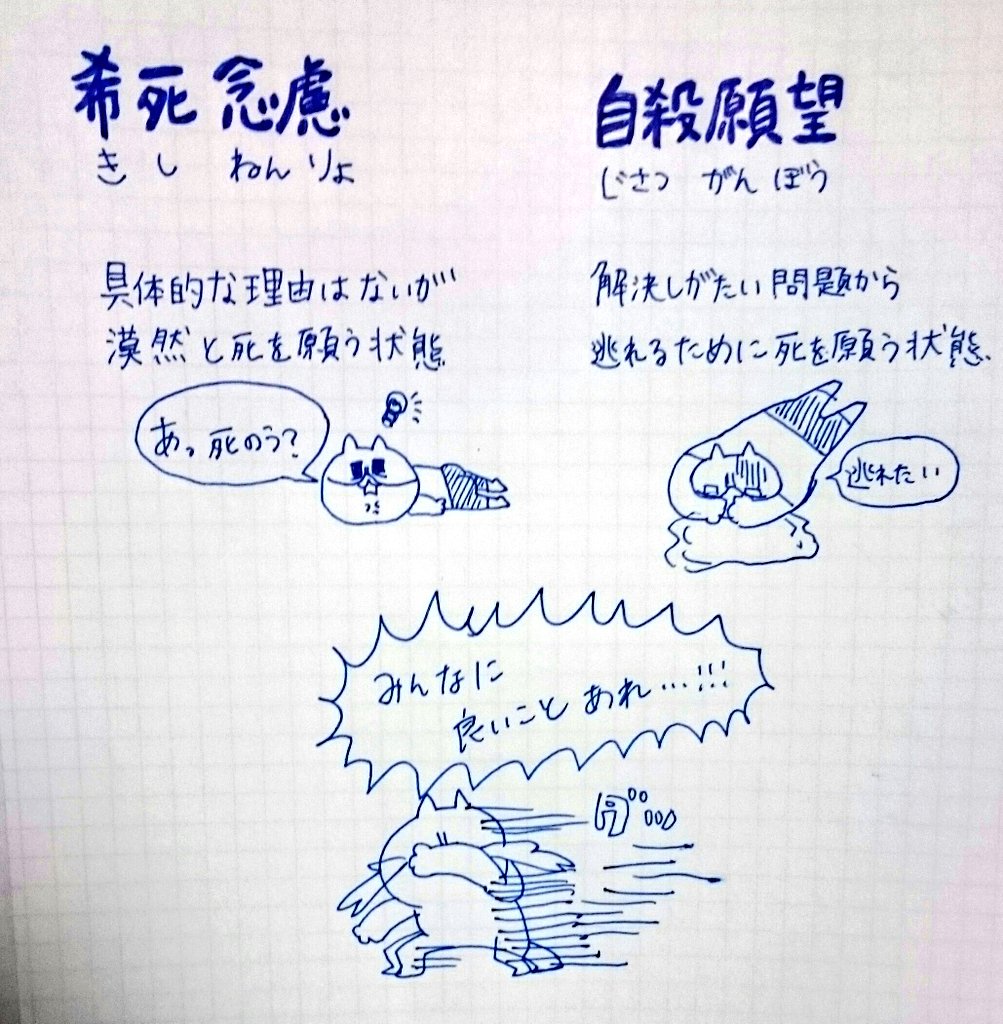 希死念慮
きしねんりょ
具体的な理由はないが
漠然と死を願う状態
あっ死のう?
自殺願望
じさつがんぼう
解決しがたい問題から
逃れるために死を願う状態.
逃れたい
みんなに
良いことあれ…!!!